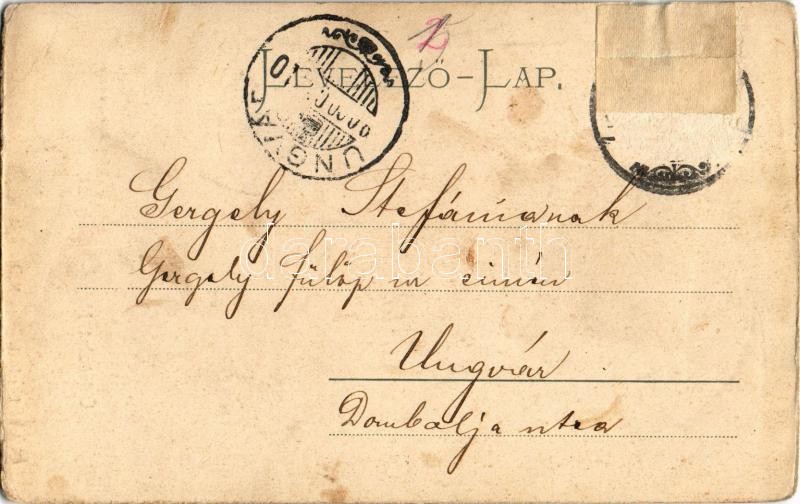 2
LEVELEZŐ-LAP.
UNGVÁR
Gergely Stefániának
Gergely Fülöp ur címén
Ungvár
Dombalja utca
darabanth